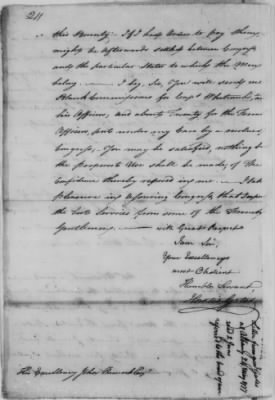 211
this Bounty; If I had Orders to pay them,
might be afterwards settled between Congress
and the particular States to which the Men
belong. — I beg, Sir, You will send me
Blank Commissions for Capt Whitcomb, &
his Officers, and about Twenty for the
Officers, sent under any Care by a
Congress; You may be satisfied, nothing
Use shall be made, of the
Confidence thereby reposed in me. — I take
Pleasure in assuring Congress, that I
the best Services from some of the
Gentlemen. — with Great Respect
I am Sir,
Your Excellency's
most Obedient
Humble Servant
Horatio Gates
His Excellency John Hancock Esqr
Letter from genl Gates
at Albany May 1777
read 2 June